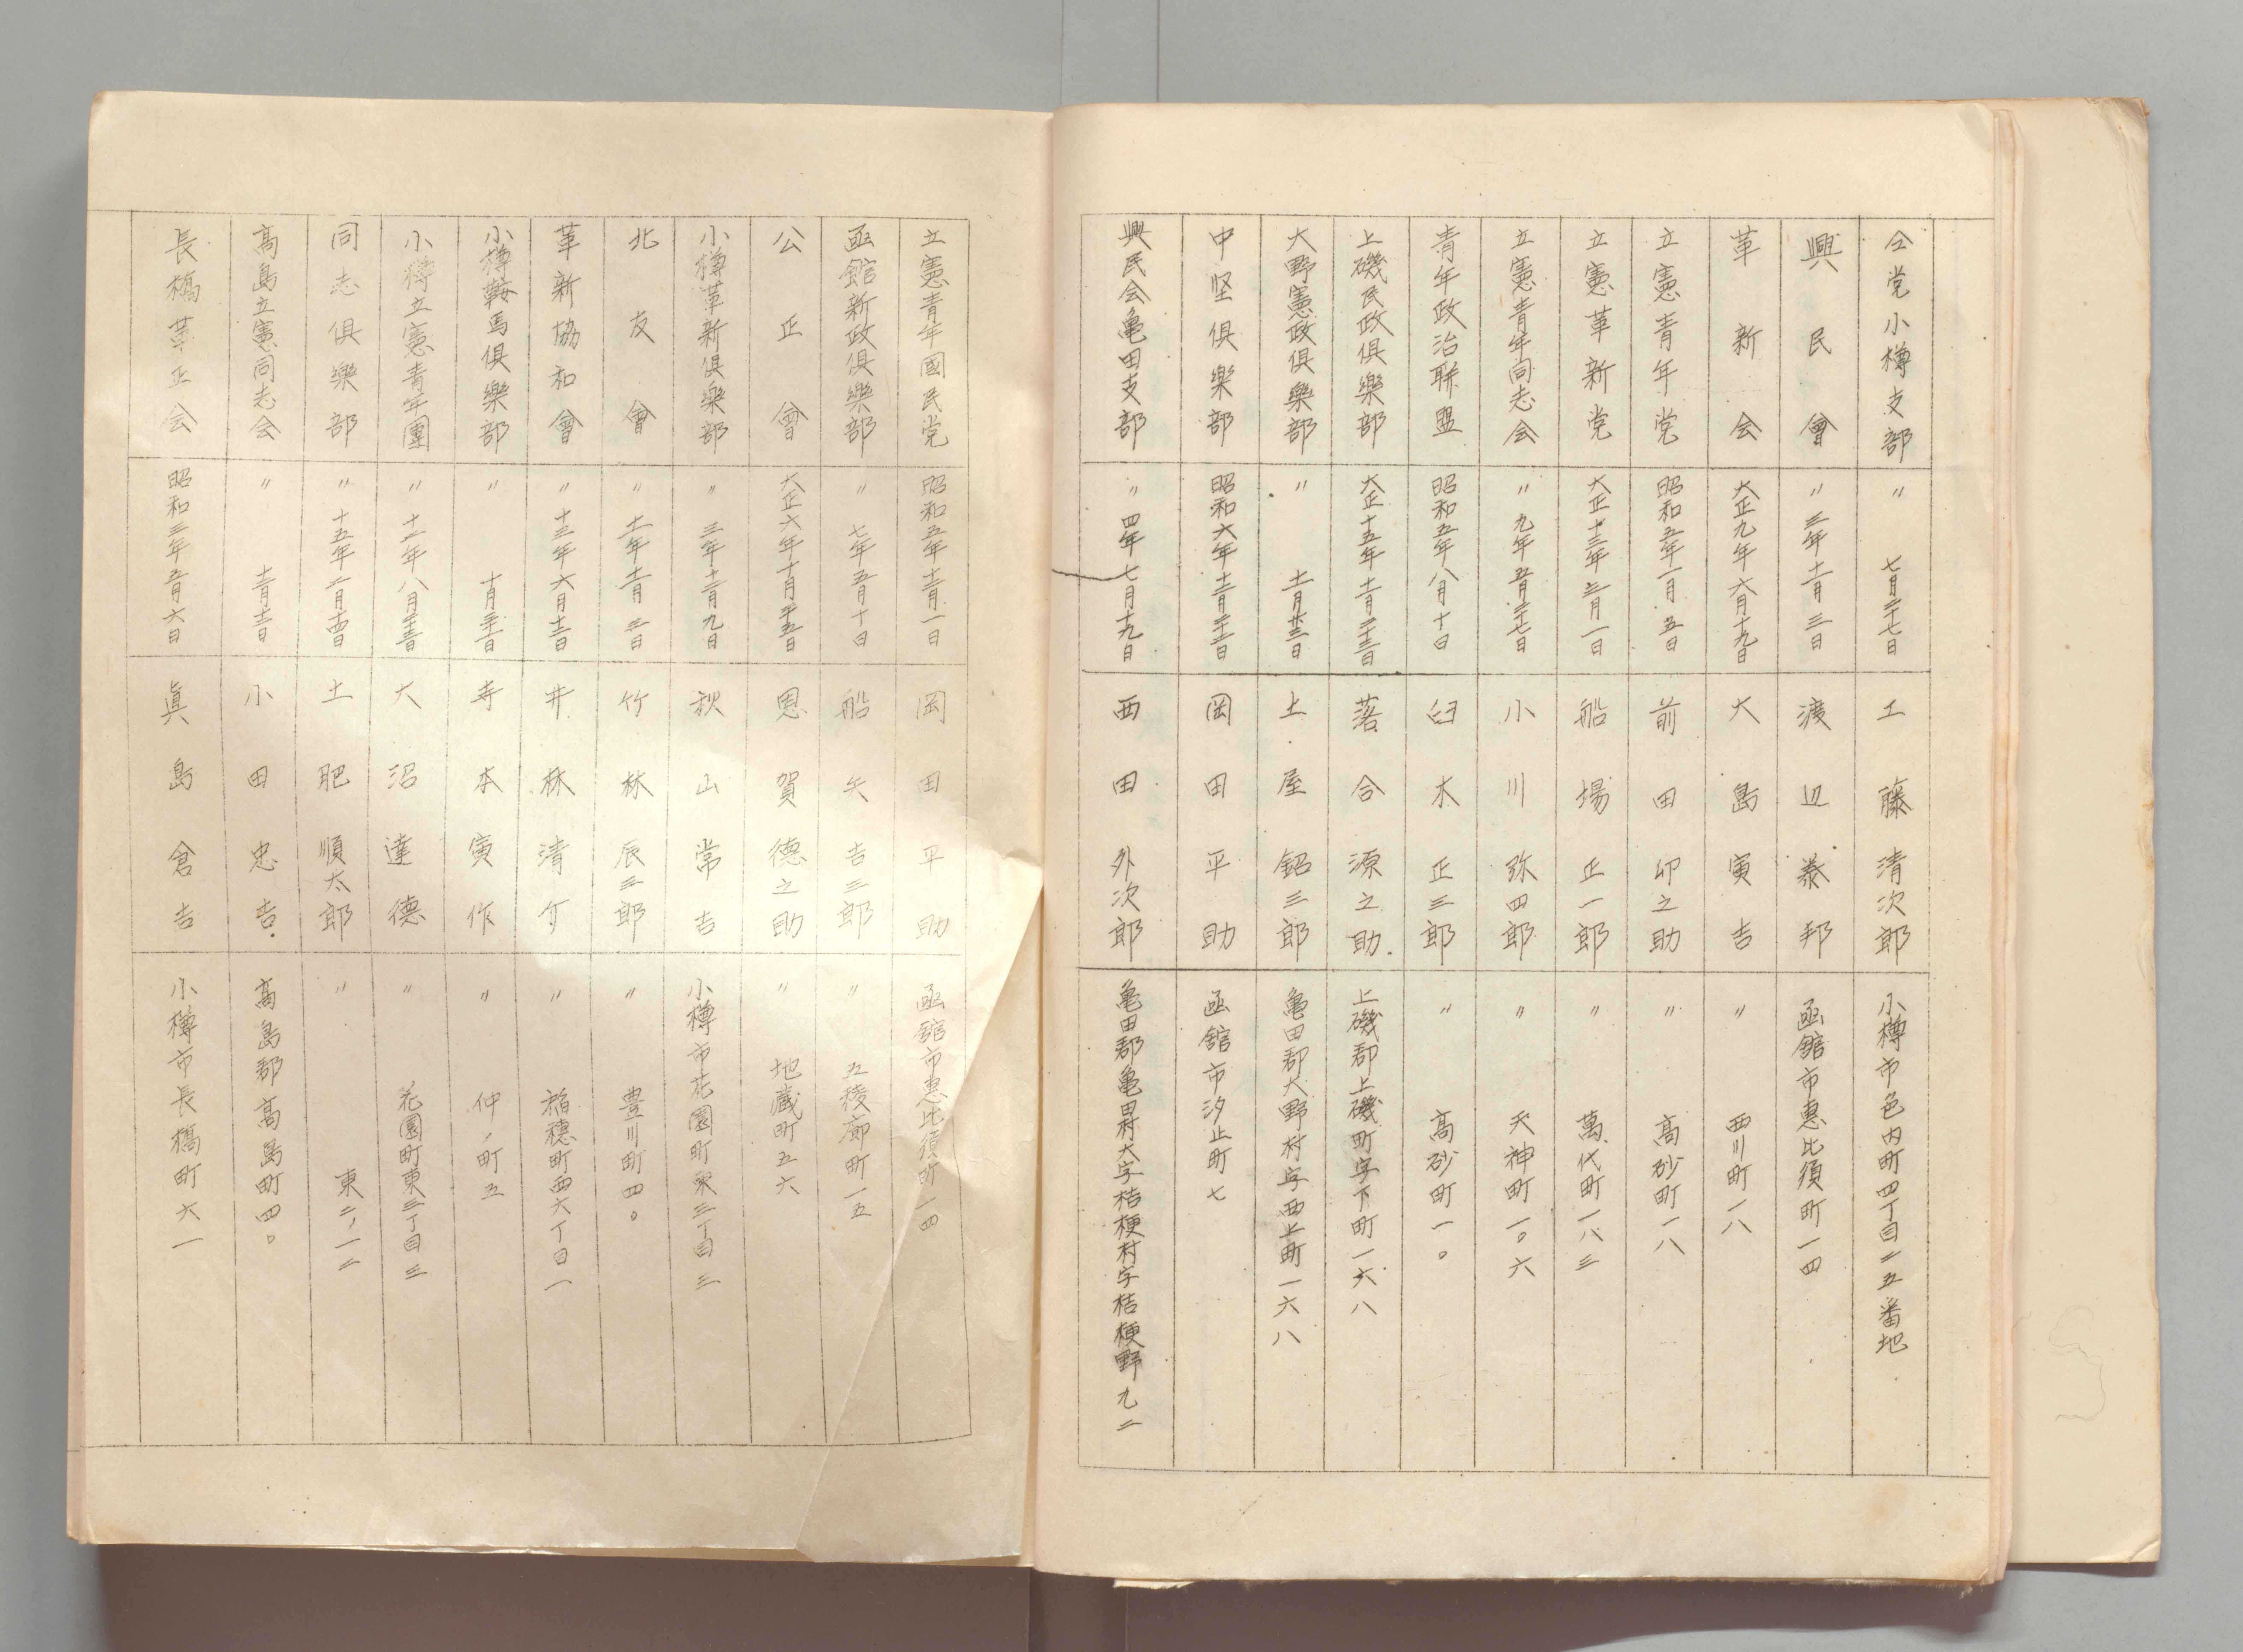 仝党小樽支部 〃 七月二十七日 工藤清次郎 小樽市色内町四丁目二五番地
興民會 〃三年十一月三日 渡辺泰邦 函館市惠比須町一四
革新会 大正九年六月十九日 大島寅吉 〃 西川町一八
立憲青年党 昭和五年一月五日 前田卯之助 〃 高砂町一八
立憲革新党 大正十三年三月一日 船場正一郎 〃 萬代町一八三
立憲青年同志会 〃九年五月二十七日 小川弥四郎 〃 天神町一〇六
青年政治聯盟 昭和五年八月十日 臼木正三郎 〃 高砂町一〇
上磯民政俱樂部 大正十五年十一月二十三日 落合源之助 上磯郡上磯町字下町一六八
大野憲政俱樂部 〃 十一月廿三日 土屋鉊三郎 亀田郡大野村字西上町一六八
中堅俱樂部 昭和六年十二月二十二日 岡田平助 函館市汐止町七
興民会亀田支部 〃四年七月十九日 西田外次郎 亀田郡亀田村大字桔梗村字桔梗野九二
立憲青年國民党 昭和五年十二月一日 岡田平助 函館市惠比須町一四
函館新政俱樂部 〃七年五月十日 船矢吉三郎 〃 五稜廓町一五
公正會 大正六年十月二十五日 恩賀德之助 〃 地蔵町五六
小樽革新俱樂部 〃三年十二月九日 秋山常吉 小樽市花園町東三丁目三
北友會 〃十一年十一月三日 竹林辰三郎 〃 豊川町四〇
革新協和會 〃十三年六月十二日 井林清 〃 稲穗町西六丁目一
小樽鞍馬俱樂部 〃 十月三十一日 寺本寅作 〃 仲ノ町五
小樽立憲青年團 〃十一年八月二十三日 大沼達德 〃 花園町東三丁目三
同志俱樂部 〃十五年二月十四日 土肥順太郎 〃 東二ノ一二
高島立憲同志会 〃 十二月十三日 小田忠吉 高島郡高島町四〇
長橋革正会 昭和三年五月六日 眞島倉吉 小樽市長橋町六一